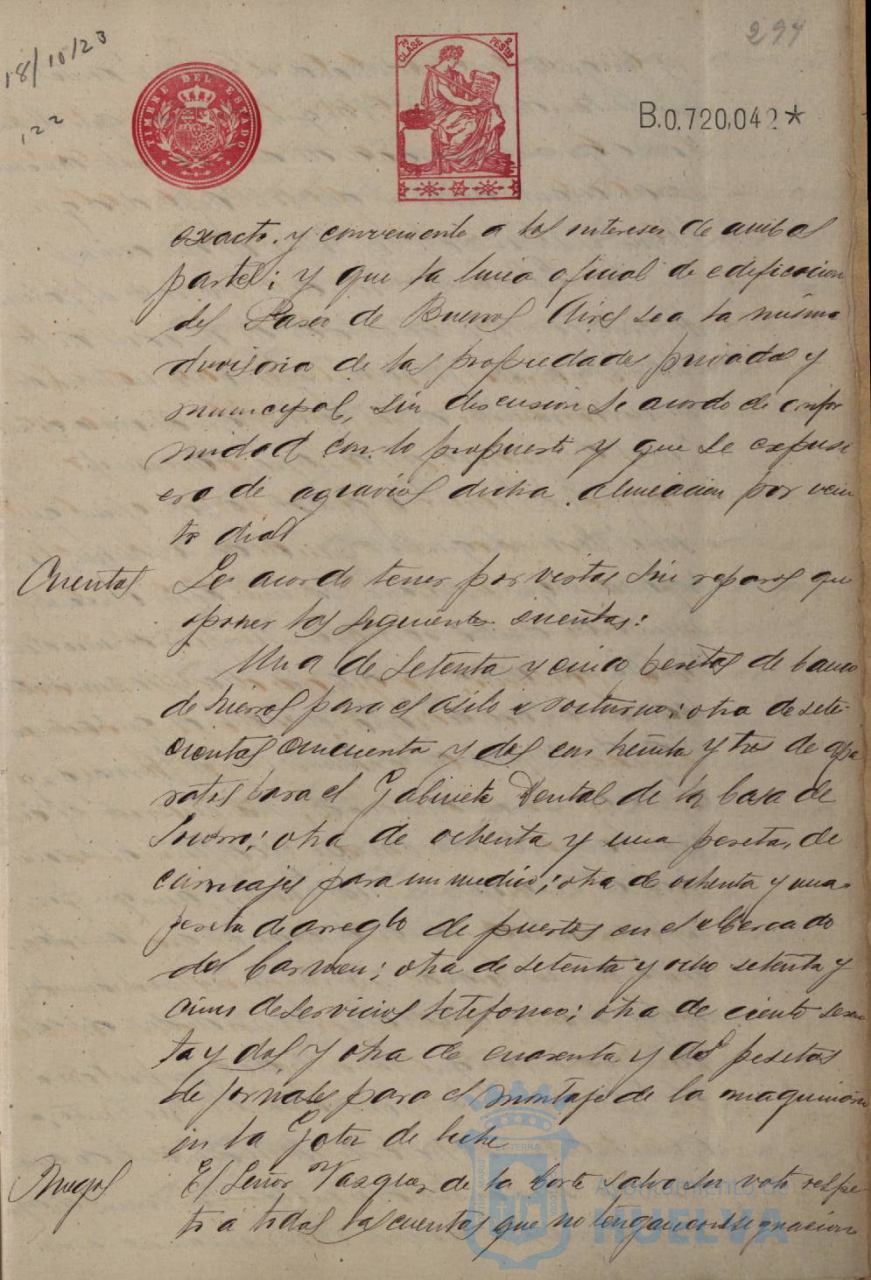 18/10/23
122
TIMBRE DEL ESTADO
7ª CLASE 2 PESETAS
294
B.0.720,042*
exacto y conveniente a los intereses de ambas
partes; y que la linea oficial de edificacion
del Paseo de Buenos Aires sea la misma
divisoria de las propiedades privadas y
municipal, sin discusion se acordo de confor
midad con lo propuesto y que se expusi
era de agravios dicha alineacion por vein
te dias
Cuentas Se acordo tener por vistas sin reparos que
oponer las siguientes cuentas:
Una de setenta y cinco pesetas de banco
de hierro para el Asilo Nocturno; otra de sete
cientas cincuenta y dos con treinta y tres de apa
ratos para el Gabinete Dental de la Casa de
Socorro; otra de ochenta y una pesetas de
carruajes para un medico; otra de ochenta y una
peseta de arreglo de puertas en el Mercado
del Carmen; otra de setenta y ocho setenta y
cinco de servicios telefonico; otra de ciento sesen
ta y dos y otra de cuarenta y dos pesetas
de jornales para el montaje de la maquinaria
en la Gota de leche
Ruegos El Señor Vasquez de la Corte salvo su voto respec
to a todas las cuentas que no tengan consignacion
Ayuntamiento de
HUELVA